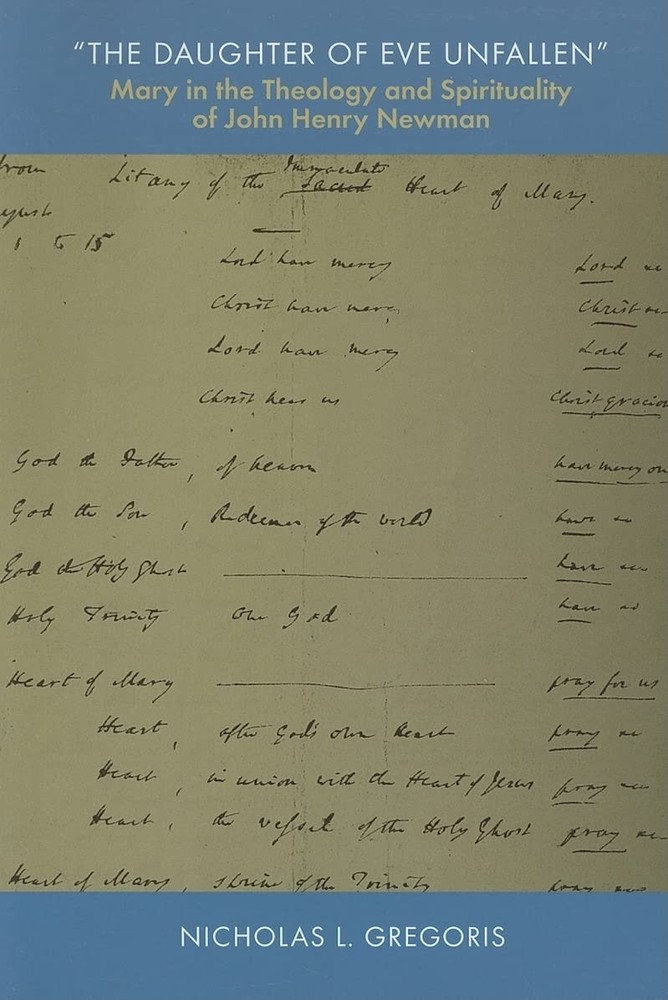 “THE DAUGHTER OF EVE UNFALLEN”
Mary in the Theology and Spirituality
of John Henry Newman
from
Immaculate
Litany of the Sacred Heart of Mary.
1 to 15
Lord have mercy Lord
Christ have mercy Christ
Lord have mercy Lord
Christ hear us Christ gracio
God the Father, of heaven have mercy on
God the Son, Redeemer of the world have
God the Holy Ghost have
Holy Trinity One God have
Heart of Mary pray for us
Heart, after God's own heart pray
Heart, in union with the Heart of Jesus pray
Heart, the vessel of the Holy Ghost pray
Heart of Mary, shrine of the Trinity pray
NICHOLAS L. GREGORIS